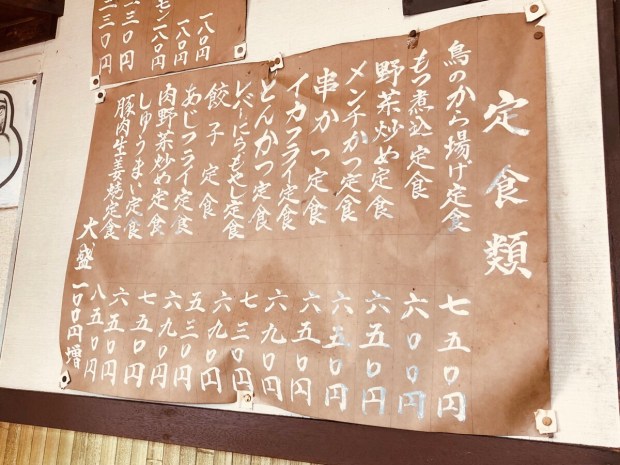 定食類
鳥のから揚げ定食 七五〇円
もつ煮込定食 六〇〇円
野菜炒め定食 六五〇円
メンチかつ定食 六五〇円
串かつ定食 六五〇円
イカフライ定食 六九〇円
とんかつ定食 七三〇円
レバーにらもやし定食 六九〇円
餃子定食 五三〇円
あじフライ定食 六九〇円
肉野菜炒め定食 七五〇円
しゅうまい定食 六五〇円
豚肉生姜焼定食 八五〇円
大盛 一〇〇円増
八〇円
八〇円
モン 八〇円
三〇円
三〇円